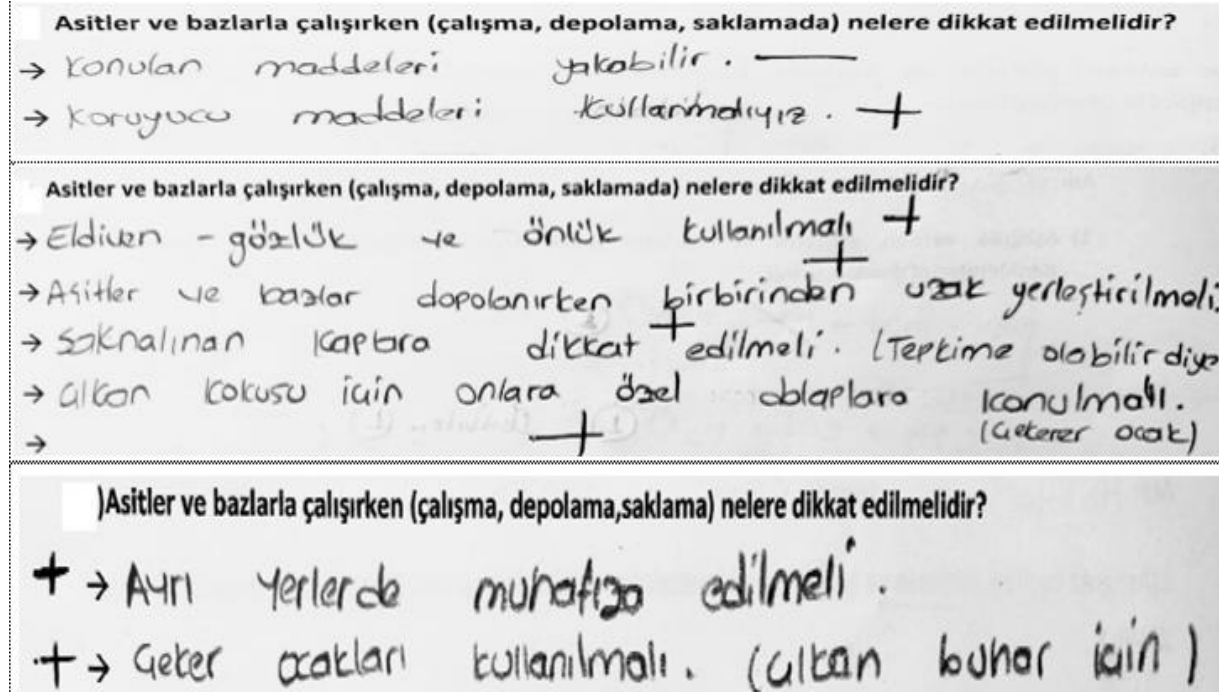 Asitler ve bazlarla çalışırken (çalışma, depolama, saklamada) nelere dikkat edilmelidir?
→ Konulan maddeleri yakabilir. —
→ Koruyucu maddeleri kullanmalıyız. +
Asitler ve bazlarla çalışırken (çalışma, depolama, saklamada) nelere dikkat edilmelidir?
→ Eldiven - gözlük ve önlük kullanılmalı +
→ Asitler ve bazlar dopolanırken birbirinden uzak yerleştirilmeli. +
→ Saknalınan kaplara dikkat edilmeli. (Tepkime olabilir diye +
→ Çıkan kokusu için onlara özel dolaplara konulmalı.
→ + (Çekerer ocak)
)Asitler ve bazlarla çalışırken (çalışma, depolama,saklama) nelere dikkat edilmelidir?
+ → Ayrı yerlerde muhafıza edilmeli.
+ → Çeker ocakları kullanılmalı. (Çıkan buhar için)